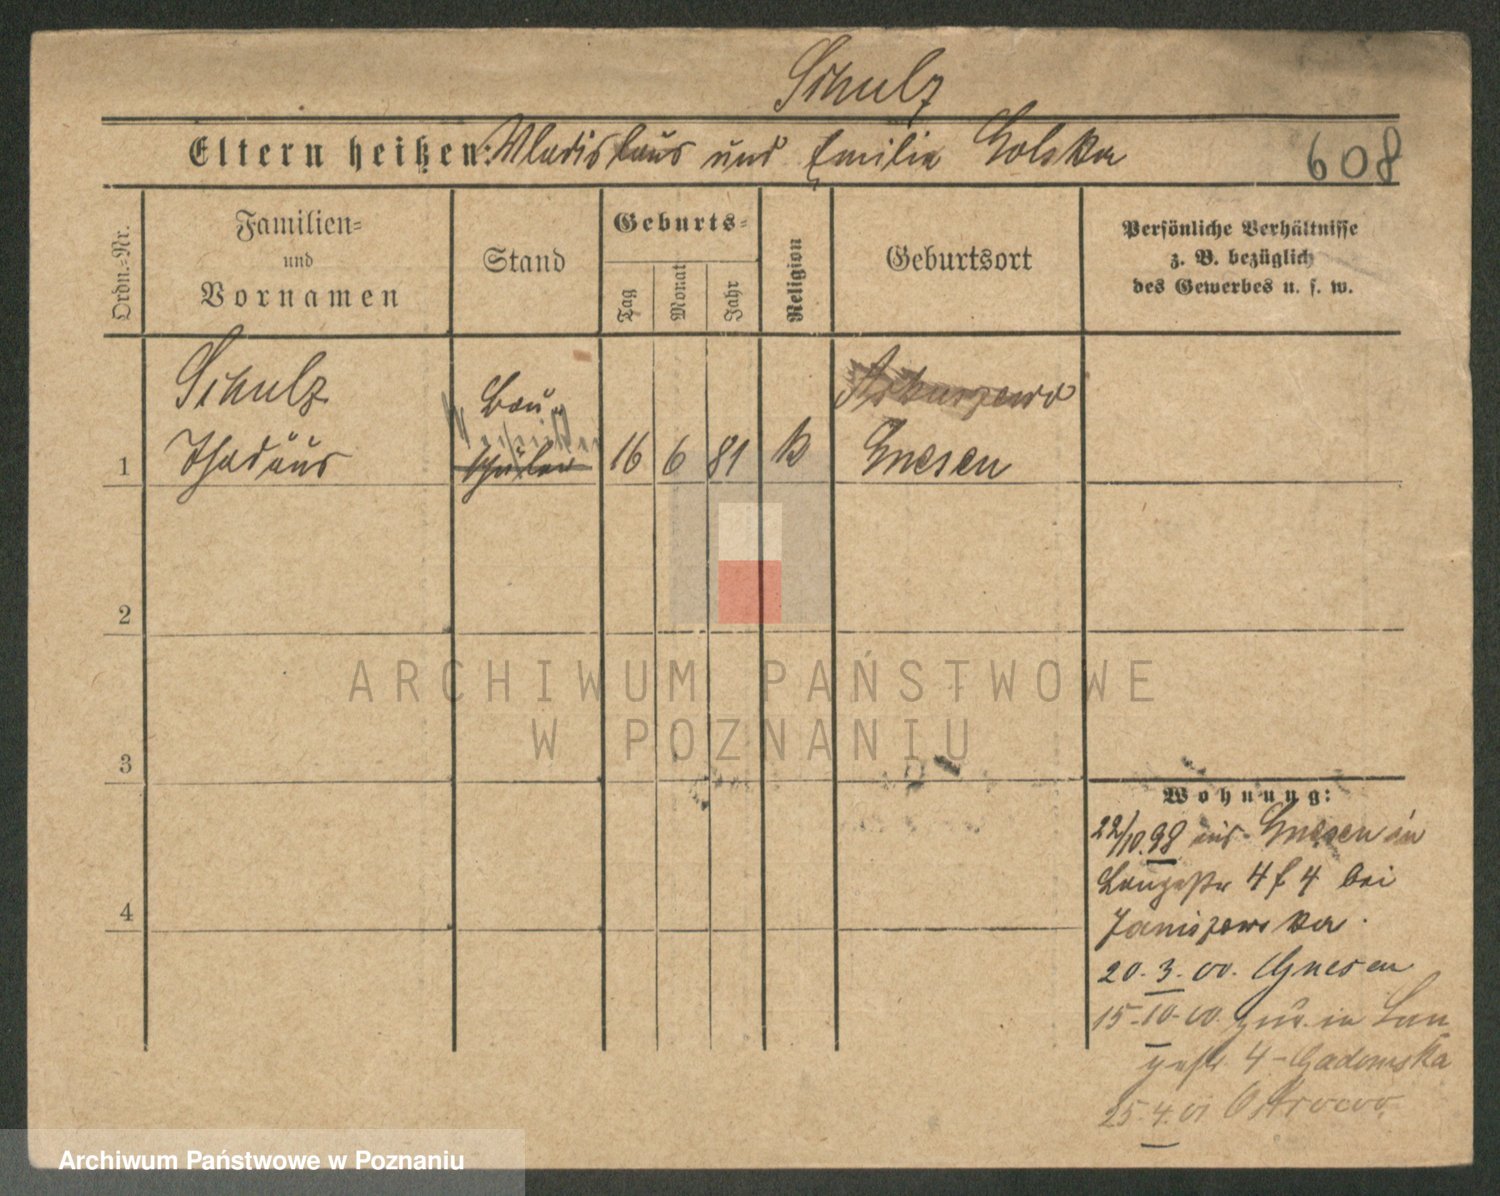 Schulz
Eltern heißen: Wladislaus und Emilia Golska
608
Ordn.-Nr.
Familien-
und
Vornamen
Stand
Geburts-
Tag
Monat
Jahr
Religion
Geburtsort
Persönliche Verhältnisse
z. B. bezüglich
des Gewerbes u. s. w.
Schulz
Bau
Thadäus
schüler
1
16
6
81
Gnesen
2
ARCHIWUM PAŃSTWOWE
W POZNANIU
3
Wohnung:
22/10.98 aus Gnesen in
Langestr 4 f 4 bei
Janiszewska.
20.3.00. Gnesen
15-10-00. zur. in Lan
gestr. 4 - Gadomska
25.4.01 Ostrowo
4
Archiwum Państwowe w Poznaniu